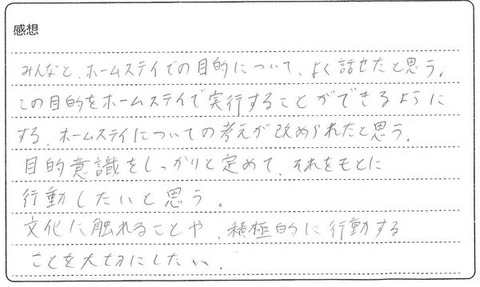 感想
みんなと、ホームステイでの目的について、よく話せたと思う。
この目的をホームステイで実行することができるように
する。ホームステイについての考えが改められたと思う。
目的意識をしっかりと定めて、それをもとに
行動したいと思う。
文化に触れることや、積極的に行動する
ことを大切にしたい。